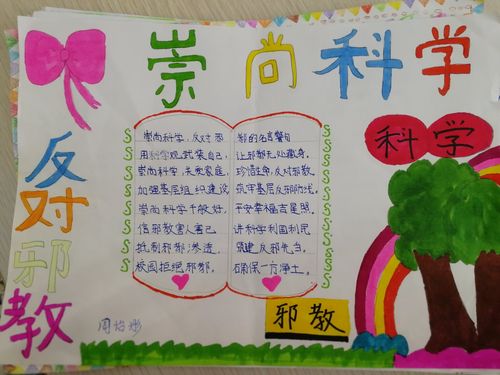 崇尚科学
反对邪教
科学
崇尚科学,反对邪
教的名言警句
用科学观武装自己,
让邪教无处藏身。
崇尚科学,关爱家庭
珍惜生命,反对邪教
加强基层组织建设
筑牢基层反邪防线。
崇尚科学千般好,
平安幸福吉星照。
信邪教害人害己
讲科学利国利民
抵制邪教渗透,
创建反邪先当。
校园拒绝邪教,
确保一方净土。
邪教